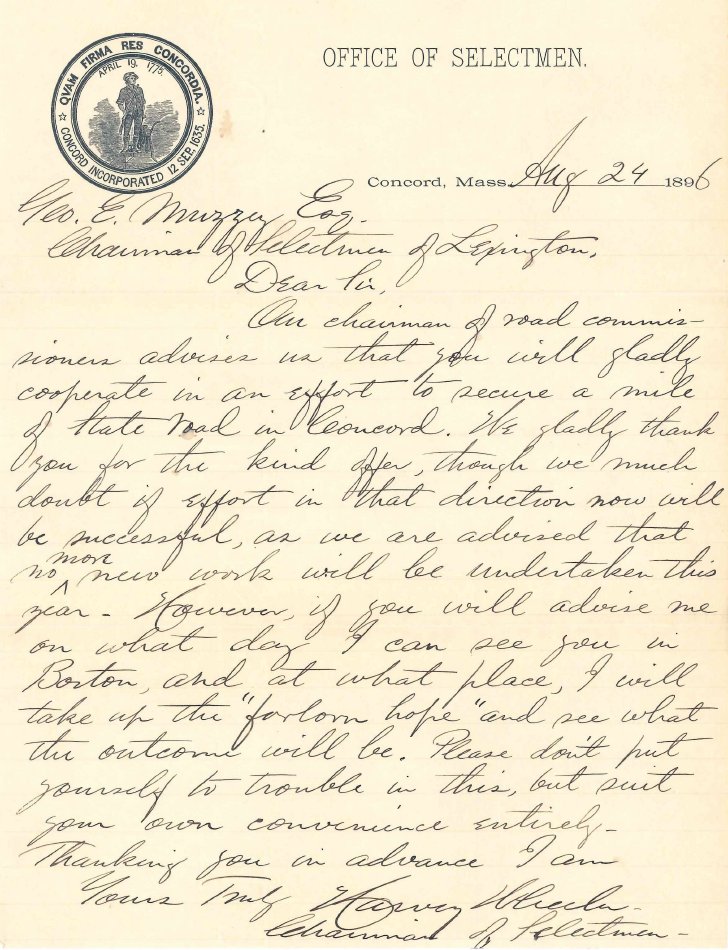 QVAM FIRMA RES CONCORDIA.
APRIL 19. 1775.
CONCORD INCORPORATED 12 SEP. 1635.
OFFICE OF SELECTMEN.
Concord, Mass. Aug 24 1896
Geo. E. Muzzey Esq.
Chairman of Selectmen of Lexington.
Dear Sir,
Our chairman of road commis-
sioners advises us that you will gladly
cooperate in an effort to secure a mile
of State road in Concord. We gladly thank
you for the kind offer, though we much
doubt if effort in that direction now will
be successful, as we are advised that
no more new work will be undertaken this
year - However, if you will advise me
on what day I can see you in
Boston, and at what place, I will
take up the "forlorn hope" and see what
the outcome will be. Please don't put
yourself to trouble in this, but suit
your own convenience entirely -
Thanking you in advance I am
Yours Truly Harvey Wheeler -
Chairman of Selectmen -